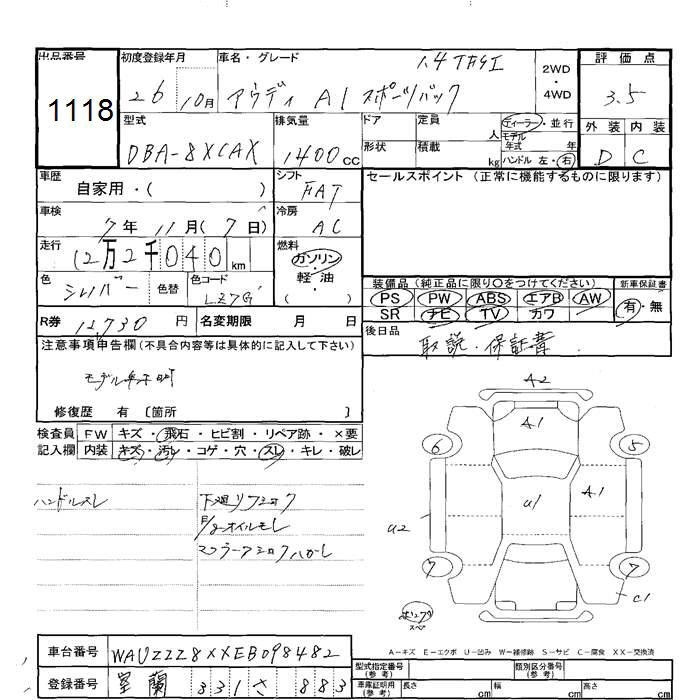 出品番号 初度登録年月 車名・グレード 1.4 TFSI 2WD 評価点
1118 26 10月 アウディ A1 スポーツバック 4WD 3.5
型式 排気量 ドア 定員 人 ディーラー・並行 外装 内装
DBA-8XCAX 1400cc 形状 積載 kg モデル年式 年 ハンドル 左・右 D C
車歴 自家用・( ) シフト FAT セールスポイント (正常に機能するものに限ります)
車検 7年 11月(7日) 冷房 AC
走行 12万2千040km 燃料 ガソリン・軽・油 ( )
色 シルバー 色替 色コード LZ7G 装備品 (純正品に限り○をつけてください) 新車保証書
PS PW ABS エアB AW 有・無
SR ナビ TV カワ
R券 12,730円 名変期限 月 日 後日品
取説・保証書
注意事項申告欄(不具合内容等は具体的に記入して下さい)
モデル年不明
修復歴 有 〔箇所 〕
検査員 FW キズ・飛石・ヒビ割・リペア跡・×要
記入欄 内装 キズ・汚レ・コゲ・穴・スレ・キレ・破レ
ハンドルスレ 下廻りフショク
E/gオイルモレ
マフラーフショクハガレ
A2
A1
6 5
U1 A1
U2
7 7
C1
スペア
A-キズ E-エクボ U-凹み W-補修跡 S-サビ C-腐食 XX-交換済
車台番号 WAUZZZ8XXEB098482
登録番号 室蘭 331 さ 883
型式指定番号(参考) 類別区分番号(参考)
車庫証明用(参考) 長さ cm 幅 cm 高さ cm